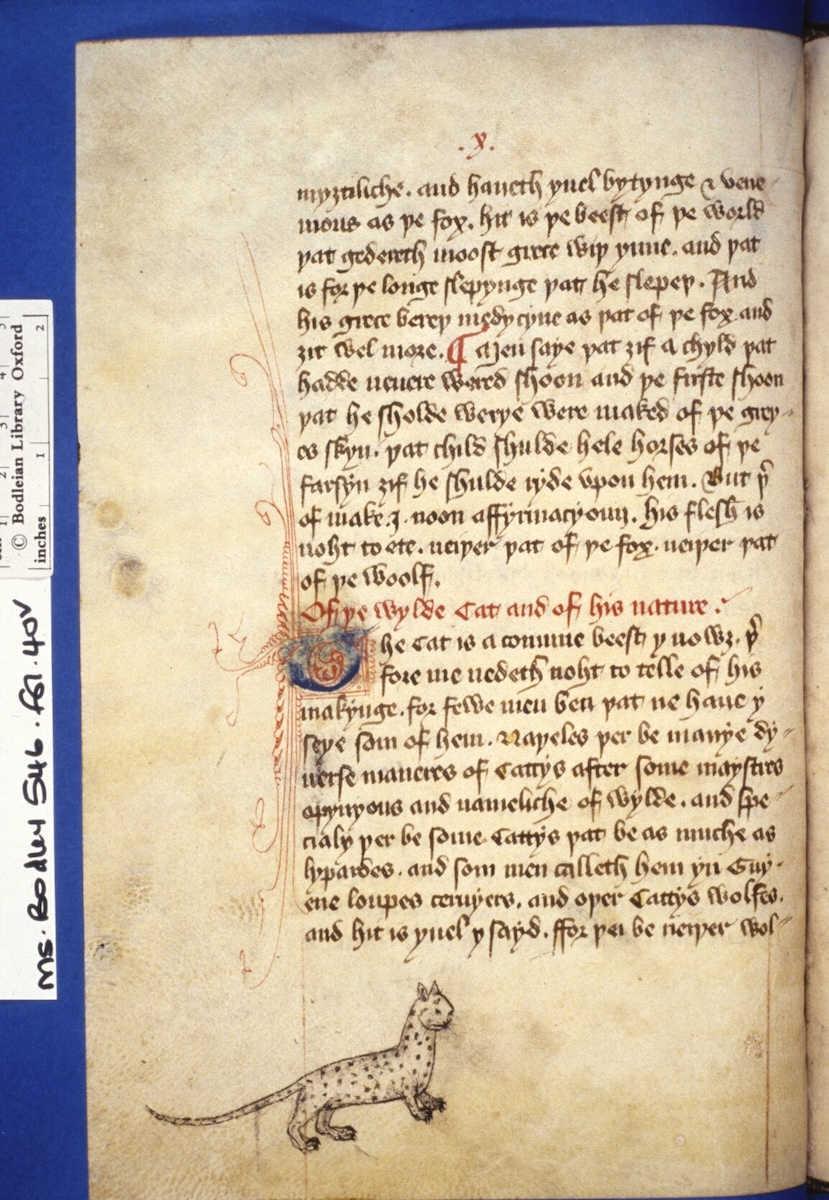 .x.
myȝtiliche. and haueth yuel bytynge & vene-
mous as þe fox. hit is þe beest of þe world
þat gedereth moost grece wiþ ynne. and þat
is for þe longe slepynge þat he slepeþ. And
his grece bereþ medycyne as þat of þe fox and
ȝit wel more. ¶ Men saye þat ȝif a chyld þat
hadde neuere wered shoon and þe firste shoon
þat he sholde werye were maked of þe grey-
es skyn. þat child shulde hele horses of þe
farsyn ȝif he shulde ryde vpon hem. But þ
of make .I. noon affyrmacyoun. his flesh is
noht to ete. neiþer þat of þe fox. neiþer þat
of þe woolf.
Of þe wylde Cat and of his nature.
The Cat is a comune beest y nowȝ. þ
fore me nedeth noht to telle of his
makynge. for fewe men ben þat ne haue y
seye som of hem. Naþeles þer be manye dy-
uerse maneres of Cattys after some maystres
opynyous and nameliche of wylde. and spe-
cialy þer be some Cattys þat be as muche as
lypardes. and som men calleth hem yn Guy-
ene loupes ceruyers. and oþer Cattys wolfes.
and hit is yuel y sayd. ffor þei be neiþer wol-
© Bodleian Library Oxford
inches 1 2
MS. Bodley 546. fol. 40v